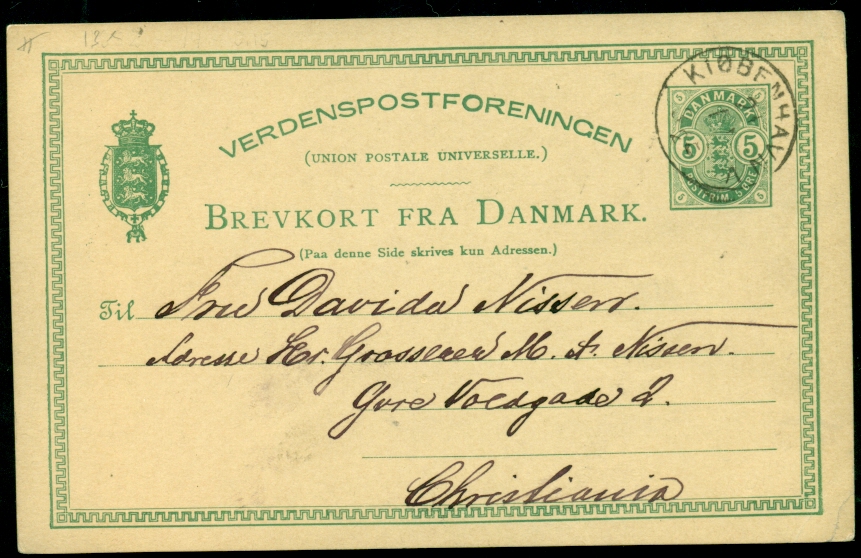 VERDENSPOSTFORENINGEN
(UNION POSTALE UNIVERSELLE.)
BREVKORT FRA DANMARK.
(Paa denne Side skrives kun Adressen.)
KJØBENHAV
DANMARK
5 5
POSTFRIM. 5 ØRE
Til Fru Davida Nissen.
Adresse Hr. Grosserer M. A. Nissen.
Øvre Voldgade 2.
Christiania